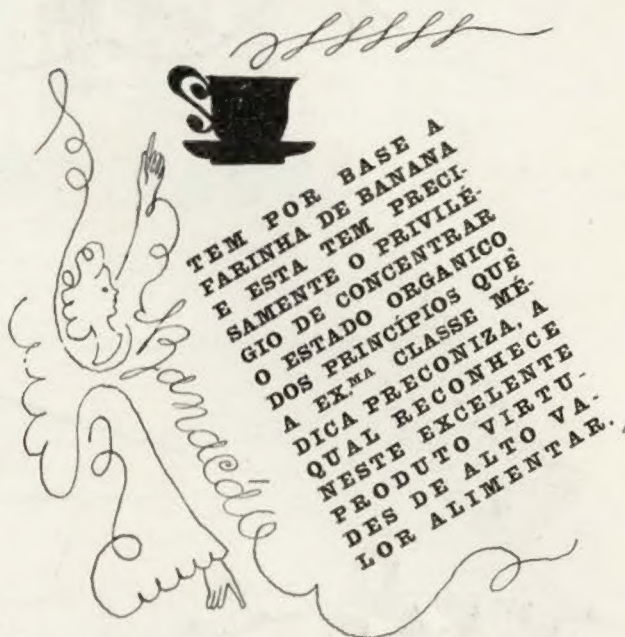 Banacáo
TEM POR BASE A
FARINHA DE BANANA
E ESTA TEM PRECI-
SAMENTE O PRIVILÉ-
GIO DE CONCENTRAR
O ESTADO ORGANICO
DOS PRINCÍPIOS QUE
A EX.MA CLASSE MÉ-
DICA PRECONIZA, A
QUAL RECONHECE
NESTE EXCELENTE
PRODUTO VIRTU-
DES DE ALTO VA-
LOR ALIMENTAR.